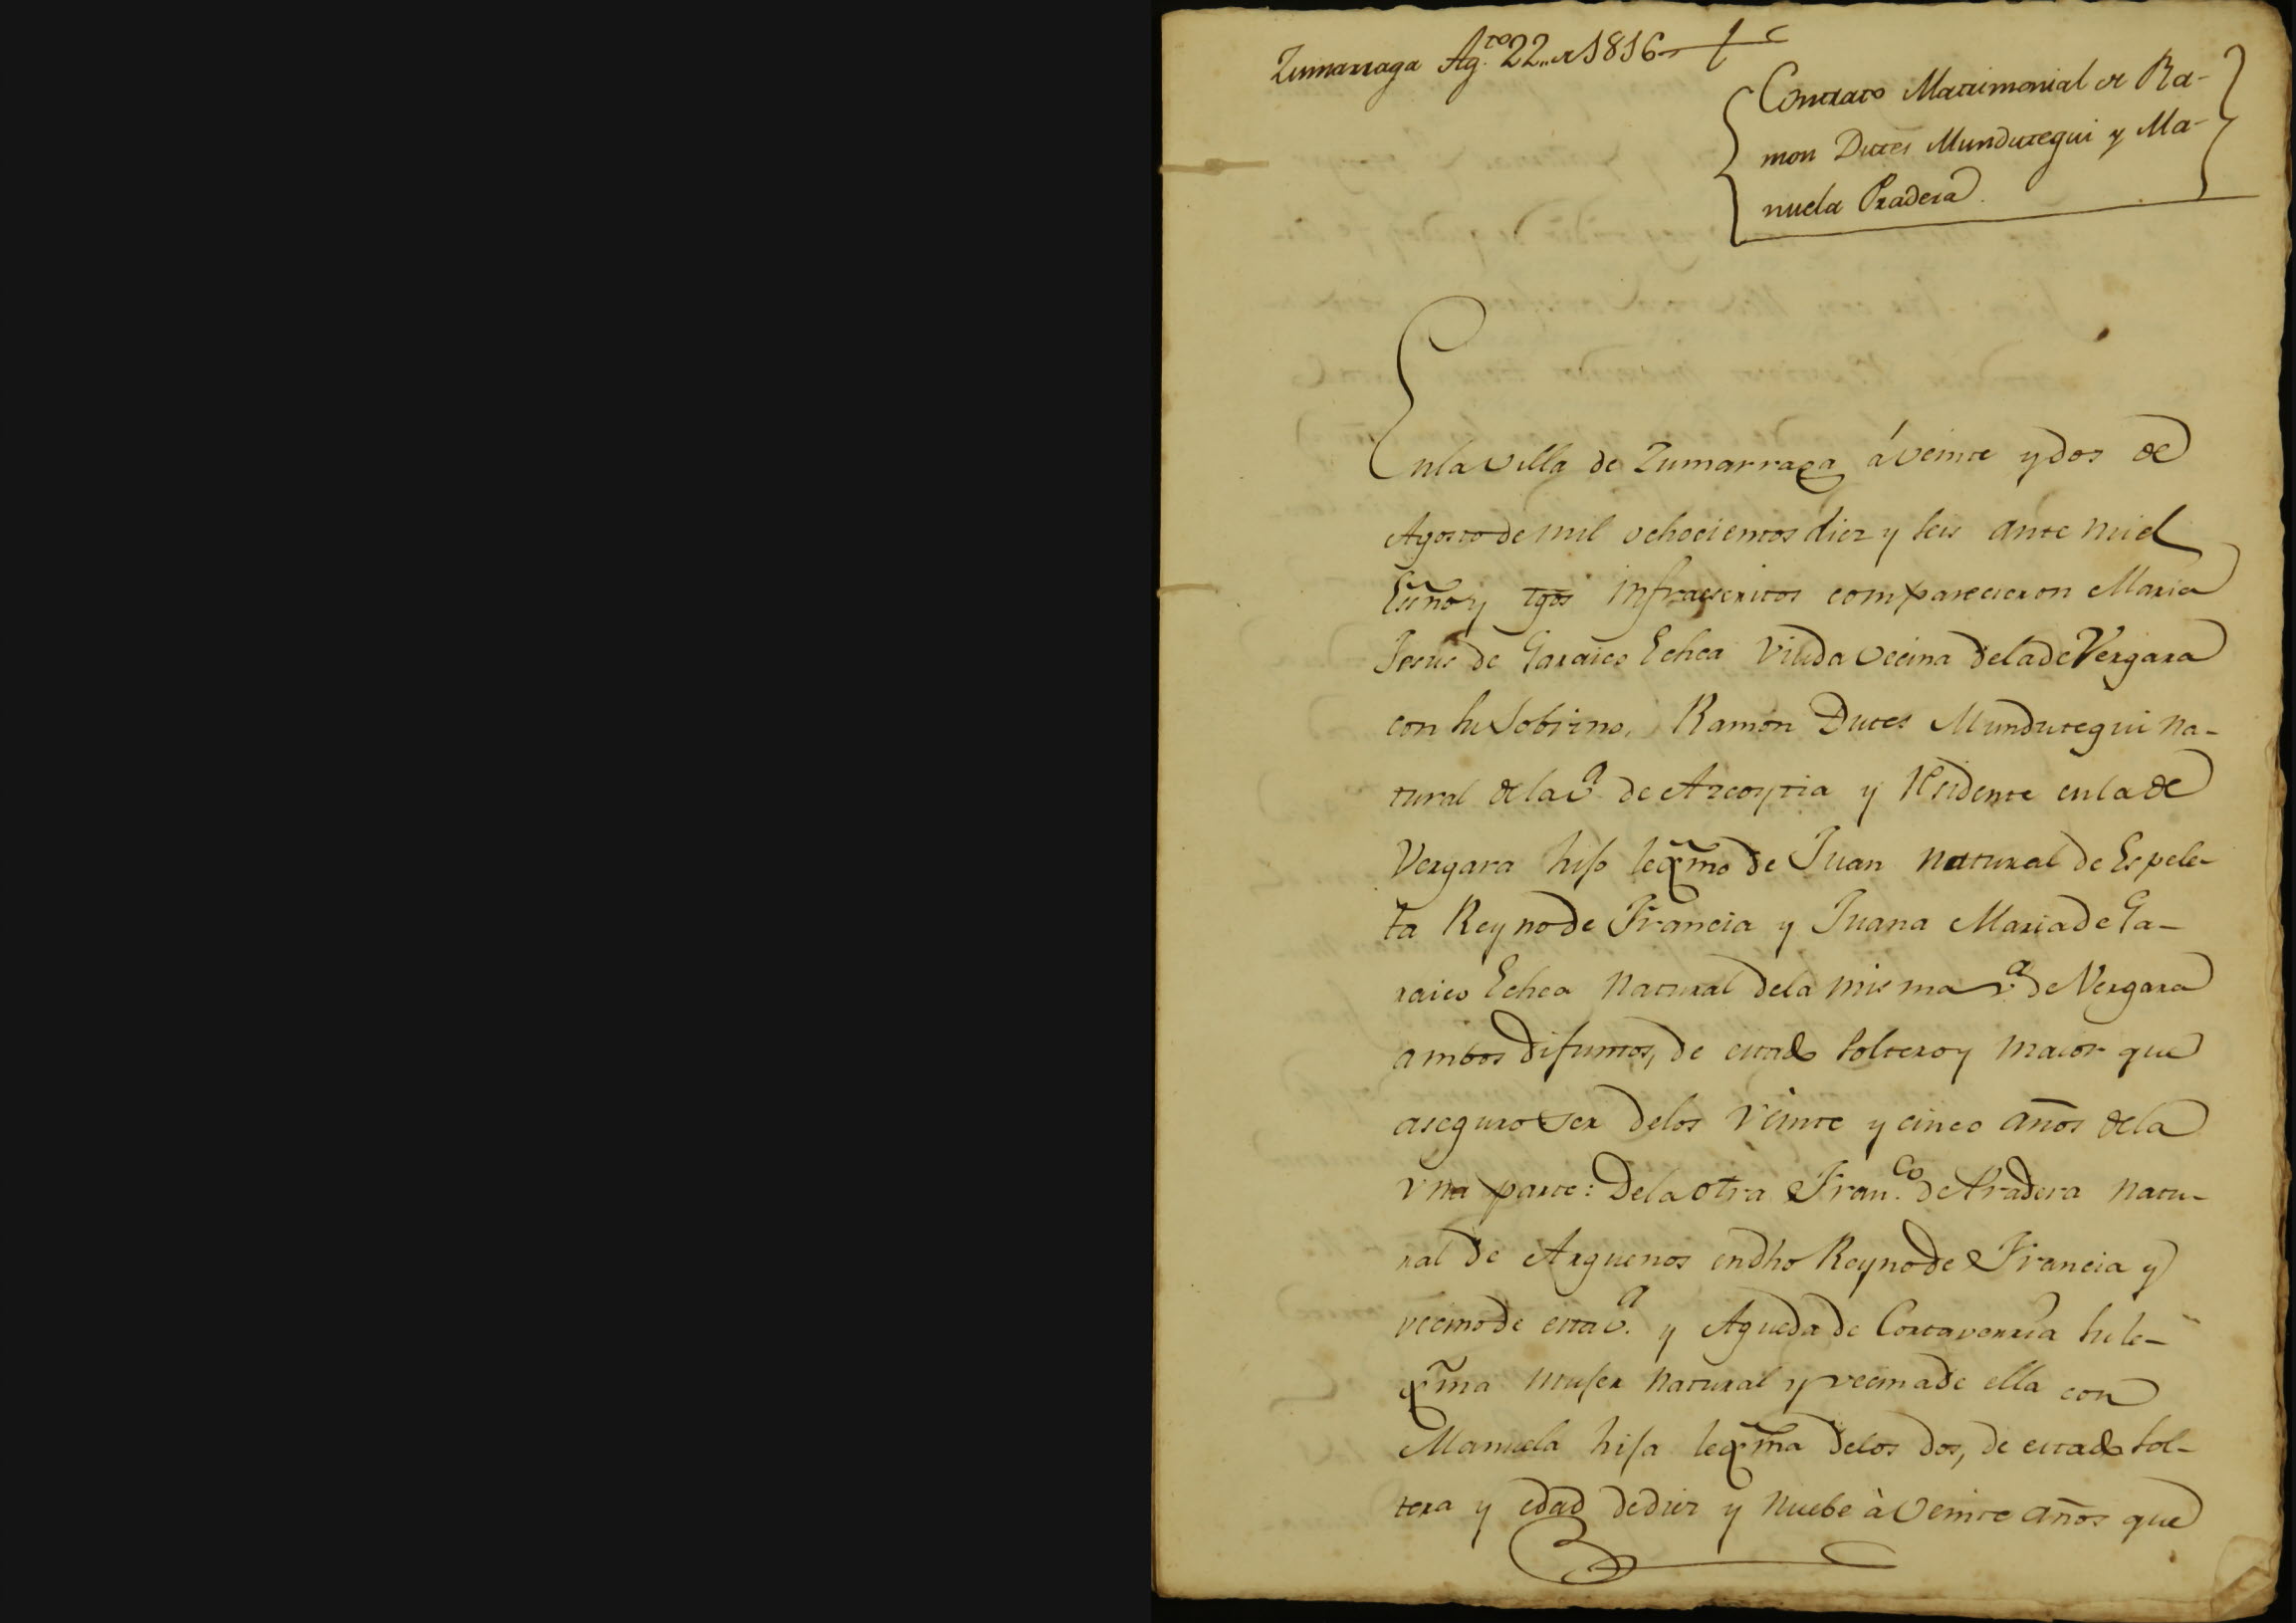 Zumarraga Ag.to 22.. de 1816
Contrato Matrimonial de Ra-
mon Dutes Mundutegui y Ma-
nuela Pradera.
En la villa de Zumarraga á veinte y dos de
Agosto de mil ochocientos diez y seis ante mi el
Essno y tgos infraescritos comparecieron Maria
Jesus de Garaico Echea viuda vecina de la de Vergara
con su sobrino, Ramon Dutes Mundutegui na-
tural de la v.a de Azcoytia y Residente en la de
Vergara hijo legmo de Juan natural de Espele-
ta Reyno de Francia y Juana Maria de Ga-
raico Echea natural de la misma v.a de Vergara
ambos difuntos, de estado soltero y maior que
aseguro ser de los veinte y cinco años de la
una parte: De la otra Fran.co de Pradera natu-
ral de Arguenos en dho Reyno de Francia y
vecino de esta v.a y Agueda de Cortaverria su le-
gma mujer natural y vecina de ella con
Manuela hija legma de los dos, de estado sol-
tera y edad de diez y nuebe à veinte años que